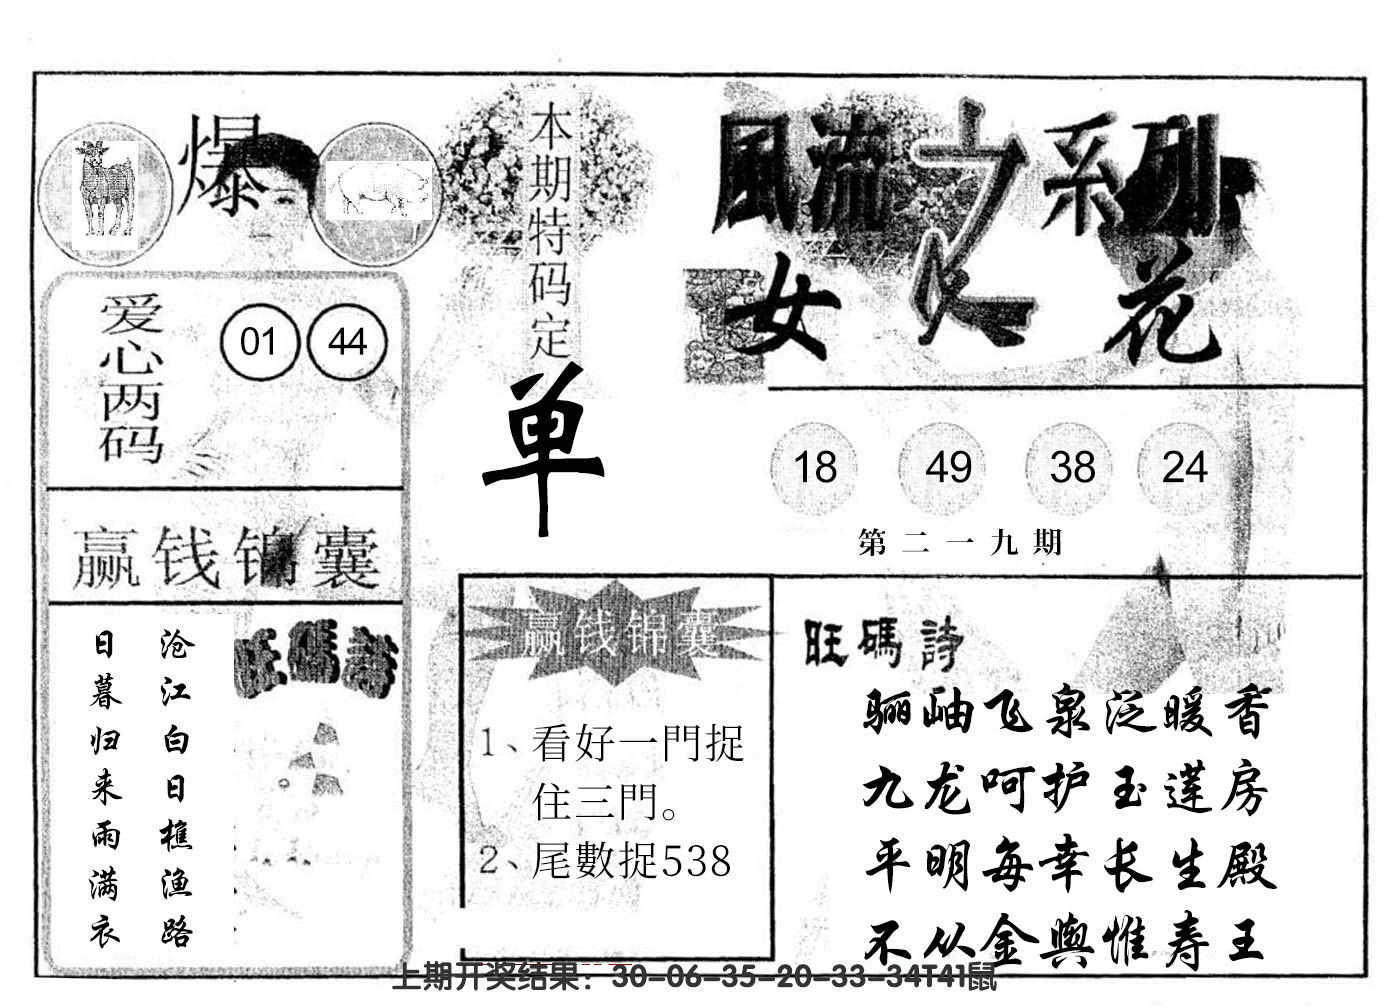 爆
本期特码定
单
風流之系列
女人花
爱心两码
01 44
18 49 38 24
第二一九期
赢钱锦囊
沧江白日樵渔路
日暮归来雨满衣
旺碼詩
赢钱锦囊
1、看好一門捉
住三門。
2、尾數捉538
旺碼詩
骊岫飞泉泛暖香
九龙呵护玉莲房
平明每幸长生殿
不从金舆惟寿王
上期开奖结果：30-06-35-20-33-34T41鼠